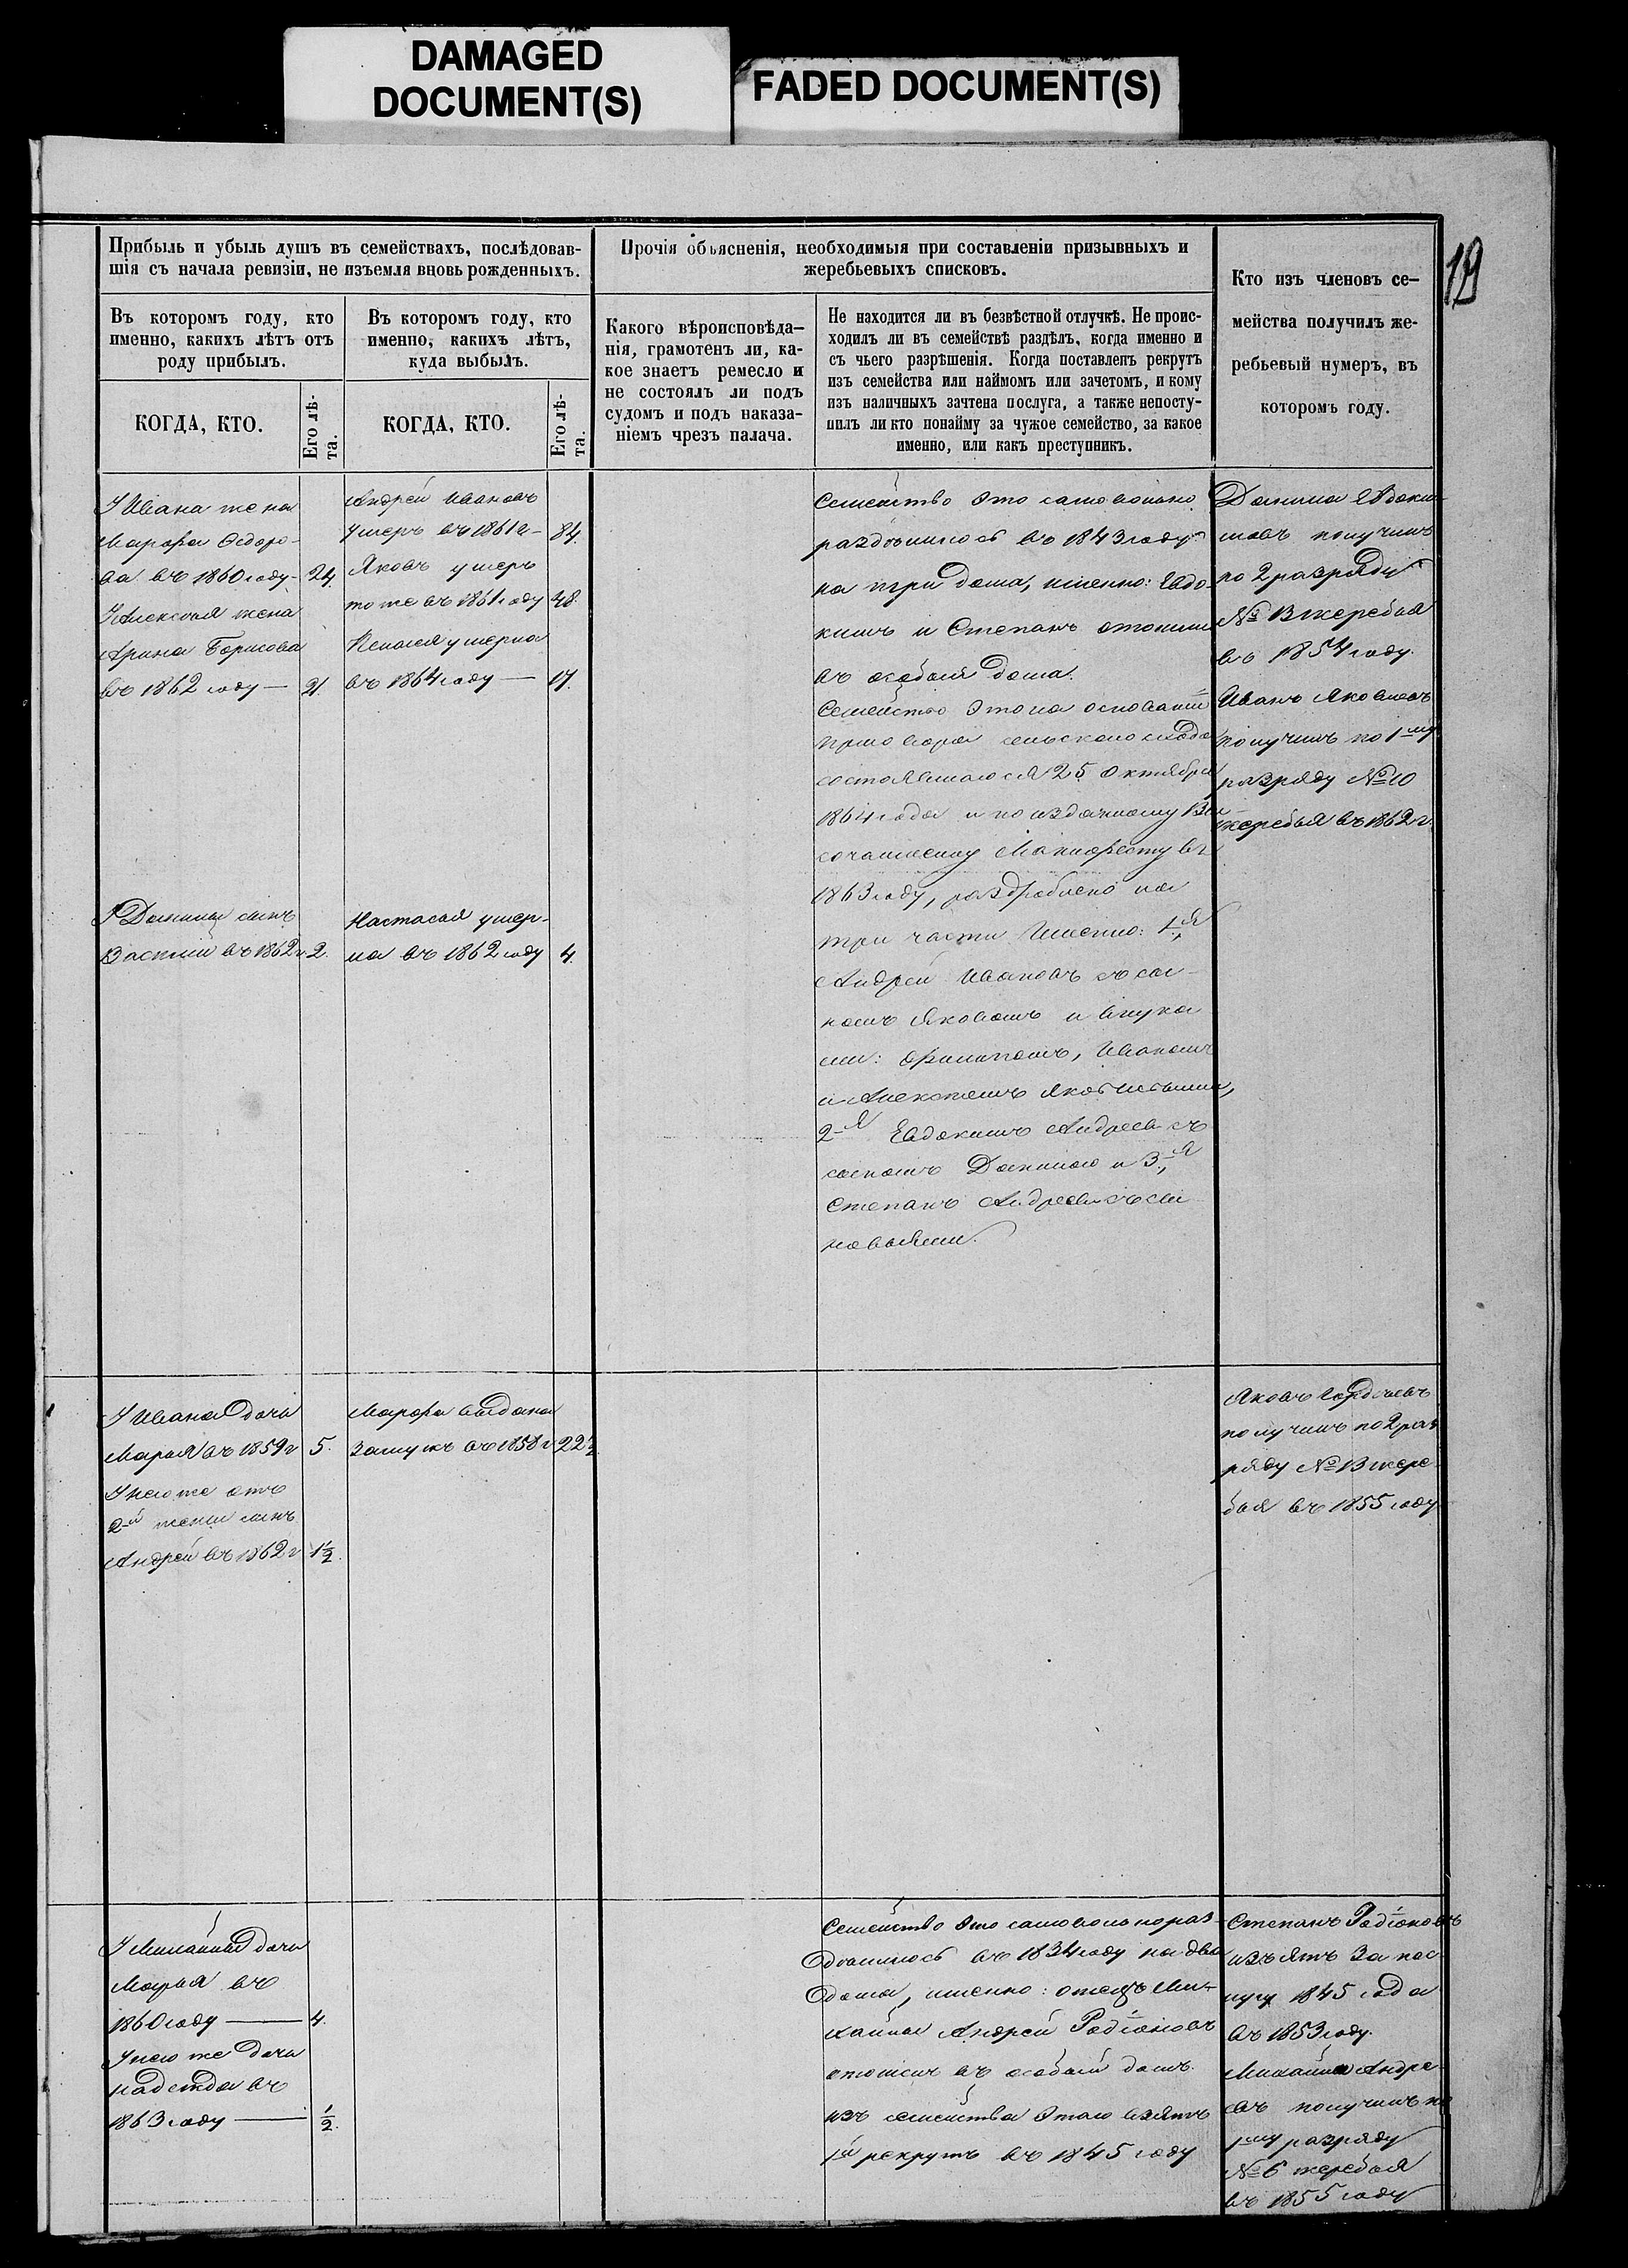 DAMAGED
DOCUMENT(S)
FADED DOCUMENT(S)
19
Прибыль и убыль душъ въ семействахъ, послѣдовав-
шія съ начала ревизіи, не изъемля вновь рожденныхъ.
Въ которомъ году, кто
именно, какихъ лѣтъ отъ
роду прибылъ.
КОГДА, КТО.
Его лѣ-
та.
Въ которомъ году, кто
именно, какихъ лѣтъ,
куда выбылъ.
КОГДА, КТО.
Его лѣ-
та.
Прочія объясненія, необходимыя при составленіи призывныхъ и
жеребьевыхъ списковъ.
Какого вѣроисповѣда-
нія, грамотенъ ли, ка-
кое знаетъ ремесло и
не состоялъ ли подъ
судомъ и подъ наказа-
ніемъ чрезъ палача.
Не находится ли въ безвѣстной отлучкѣ. Не проис-
ходилъ ли въ семействѣ раздѣлъ, когда именно и
съ чьего разрѣшенія. Когда поставленъ рекрутъ
изъ семейства или наймомъ или зачетомъ, и кому
изъ наличныхъ зачтена послуга, а также непосту-
пилъ ли кто понайму за чужое семейство, за какое
именно, или какъ преступникъ.
Кто изъ членовъ се-
мейства получилъ же-
ребьевый нумеръ, въ
которомъ году.
У Ивана жена
Марфа Федоро-
ва въ 1860 году - 24.
У Алексея жена
Арина Борисова
въ 1862 году — 21.
У Данилы сынъ
Василий въ 1862 г. 2.
Андрей Ивановъ
умеръ въ 1861 г - 84.
Яковъ умеръ
тоже въ 1861 году 48.
умерла
въ 1864 году — 17.
Настасья умер-
ла въ 1862 году 4.
Семейство это самовольно
раздѣлилось въ 1843 году
на три дома, именно: Евдо-
кимъ и Степанъ отошли
въ особыя дома.
Семейство это на основании
приговора сельскаго схода
состоявшагося 25 Октября
1864 года и по изданному Вы-
сочайшему Манифесту въ
1863 году, раздроблено на
три части Именно: 1я,
Андрей Ивановъ съ сы-
номъ Яковомъ и внука-
ми: Филипомъ, Иваномъ
и Алексеемъ Яковлевыми,
2-я Евдокимъ Андреевъ съ
сыномъ Данилою и 3я,
Степанъ Андреевъ съ сы
новьями.
Данила Евдоки-
мовъ получилъ
по 2 разряду
№ 13 жеребья
въ 1854 году.
Иванъ Яковлевъ
получилъ по 1му
разряду № 10
жеребья въ 1862 г.
У Ивана дочь
Марья въ 1859 г 5.
У него же отъ
2-й жены сынъ
Андрей въ 1862 г 1½.
Марфа выдана
замужъ въ 1858 г 22½.
Яковъ
получилъ по 2 раз
ряду № 13 жере-
бья въ 1855 году
У Михайлы дочь
Марья въ
1860 году — 4.
У него же дочь
Надежда въ
1863 году — ½.
Семейство это самовольно раз-
дѣлилось въ 1834 году на два
дома, именно: отецъ Ми-
хайлы Андрей Родіоновъ
отошелъ въ особый домъ.
Изъ семейства этого взятъ
1й рекрутъ въ 1845 году
Степанъ Родіоновъ
изъятъ за пос-
лугу 1845 года
въ 1853 году.
Михайла Андре-
евъ получилъ по
1му разряду
№ 6 жеребья
въ 1855 году